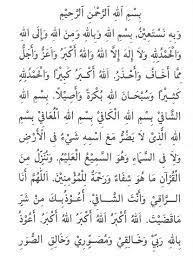 بِسْمِ اللهِ الرَّحْمٰنِ الرَّحِيْمِ
وَبِهِ نَسْتَعِيْنُ بِسْمِ اللهِ وَبِاللهِ وَمِنَ اللهِ وَإِلَى اللهِ
وَالْحَمْدُ لِلّٰهِ وَلَا إِلٰهَ إِلَّا اللهُ وَاللهُ أَكْبَرُ وَأَعَزُّ وَأَجَلُّ
مِمَّا أَخَافُ وَأَحْذَرُ. اَللهُ أَكْبَرُ كَبِيْرًا وَالْحَمْدُ لِلّٰهِ
كَثِيْرًا وَسُبْحَانَ اللهِ بُكْرَةً وَأَصِيْلًا. بِسْمِ اللهِ
الشَّافِيْ بِسْمِ اللهِ الْكَافِيْ بِسْمِ اللهِ الْمُعَافِيْ بِسْمِ
اللهِ الَّذِيْ لَا يَضُرُّ مَعَ اسْمِهِ شَيْءٌ فِى الْأَرْضِ
وَلَا فِى السَّمَاءِ وَهُوَ السَّمِيْعُ الْعَلِيْمُ. وَنُنَزِّلُ مِنَ
الْقُرْآنِ مَا هُوَ شِفَاءٌ وَرَحْمَةٌ لِلْمُؤْمِنِيْنَ. اَللّٰهُمَّ أَنَا
الرَّاقِيْ وَأَنْتَ الشَّافِيْ. أَعُوْذُ بِكَ مِنْ شَرِّ
مَا قَضَيْتَ. اَللهُ أَكْبَرُ اَللهُ أَكْبَرُ اَللهُ أَكْبَرُ. أَعُوْذُ
بِاللهِ رَبِّيْ وَخَالِقِيْ وَمُصَوِّرِيْ وَخَالِقِ الصُّوَرِ